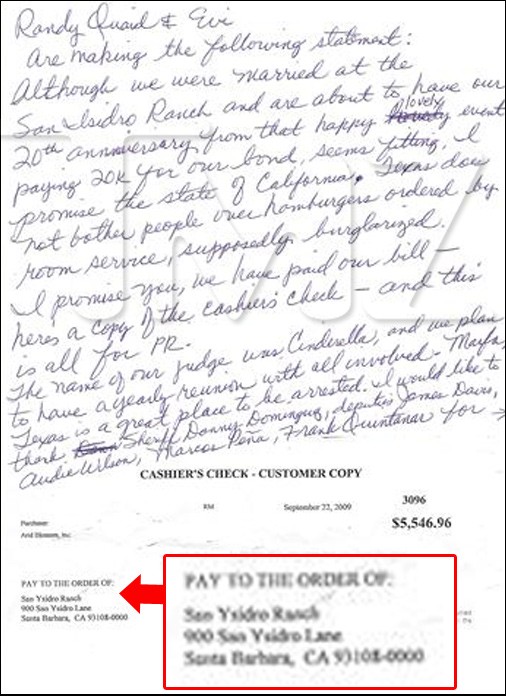 Randy Quaid & Evi
Are making the following statement:
Although we were married at the
San Isidro Ranch and are about to have our
lovely
20th annniversary from that happy event
paying 20K for our bond, seems fitting, I
promise the state of California. Texas does
not bother people over hamburgers ordered by
room service, supposedly burglarized.
I promise you, we have paid our bill –
here's a copy of the cashier's check – and this
is all for PR.
The name of our judge was Cinderella, and we plan
to have a yearly reunion with all involved – Marfa,
Texas is a great place to be arrested. I would like to
thank Sheriff Donny Dominguez, deputies James Davis,
Audie Wilson, Marcos Peña, Frank Quintanar for →
TMZ
CASHIER'S CHECK - CUSTOMER COPY
3096
RM September 22, 2009
$5,546.96
Purchaser:
Arid Blossom, Inc.
PAY TO THE ORDER OF:
San Ysidro Ranch
900 San Ysidro Lane
Santa Barbara, CA 93108-0000
PAY TO THE ORDER OF:
San Ysidro Ranch
900 San Ysidro Lane
Santa Barbara, CA 93108-0000